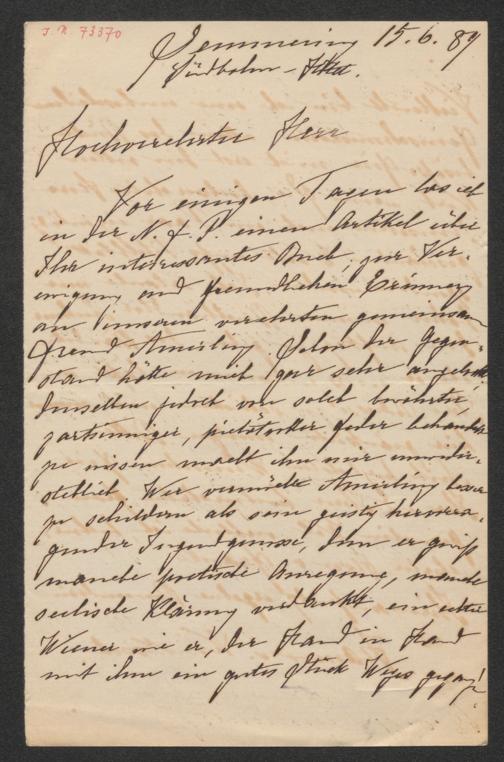 J. N. 73370
Semmering 15.6.89
Südbahn-Hôtel.
Hochverehrter Herr
Vor einigen Tagen las ich
in der N. f. P. einen Artikel über
Ihr interessantes Buch, zur Ver-
einigung und freundlichen Erinnerung
an unseren verehrten gemeinsamen
Freund Amerling. Schon der Gegen-
stand hätte mich gar sehr angelockt
denselben jedoch von solch bewährter,
zartsinniger, pietätvoller Feder behandelt
zu wissen macht ihn mir unwider-
stehlich. Wer vermöchte Amerling besser
zu schildern als sein geistig hervorra-
gender Jugendgenosse, dem er gewiß
manche poetische Anregung, manche
seelische Klärung verdankt, ein echter
Wiener wie er, der Hand in Hand
mit ihm ein gutes Stück Weges gegangen!